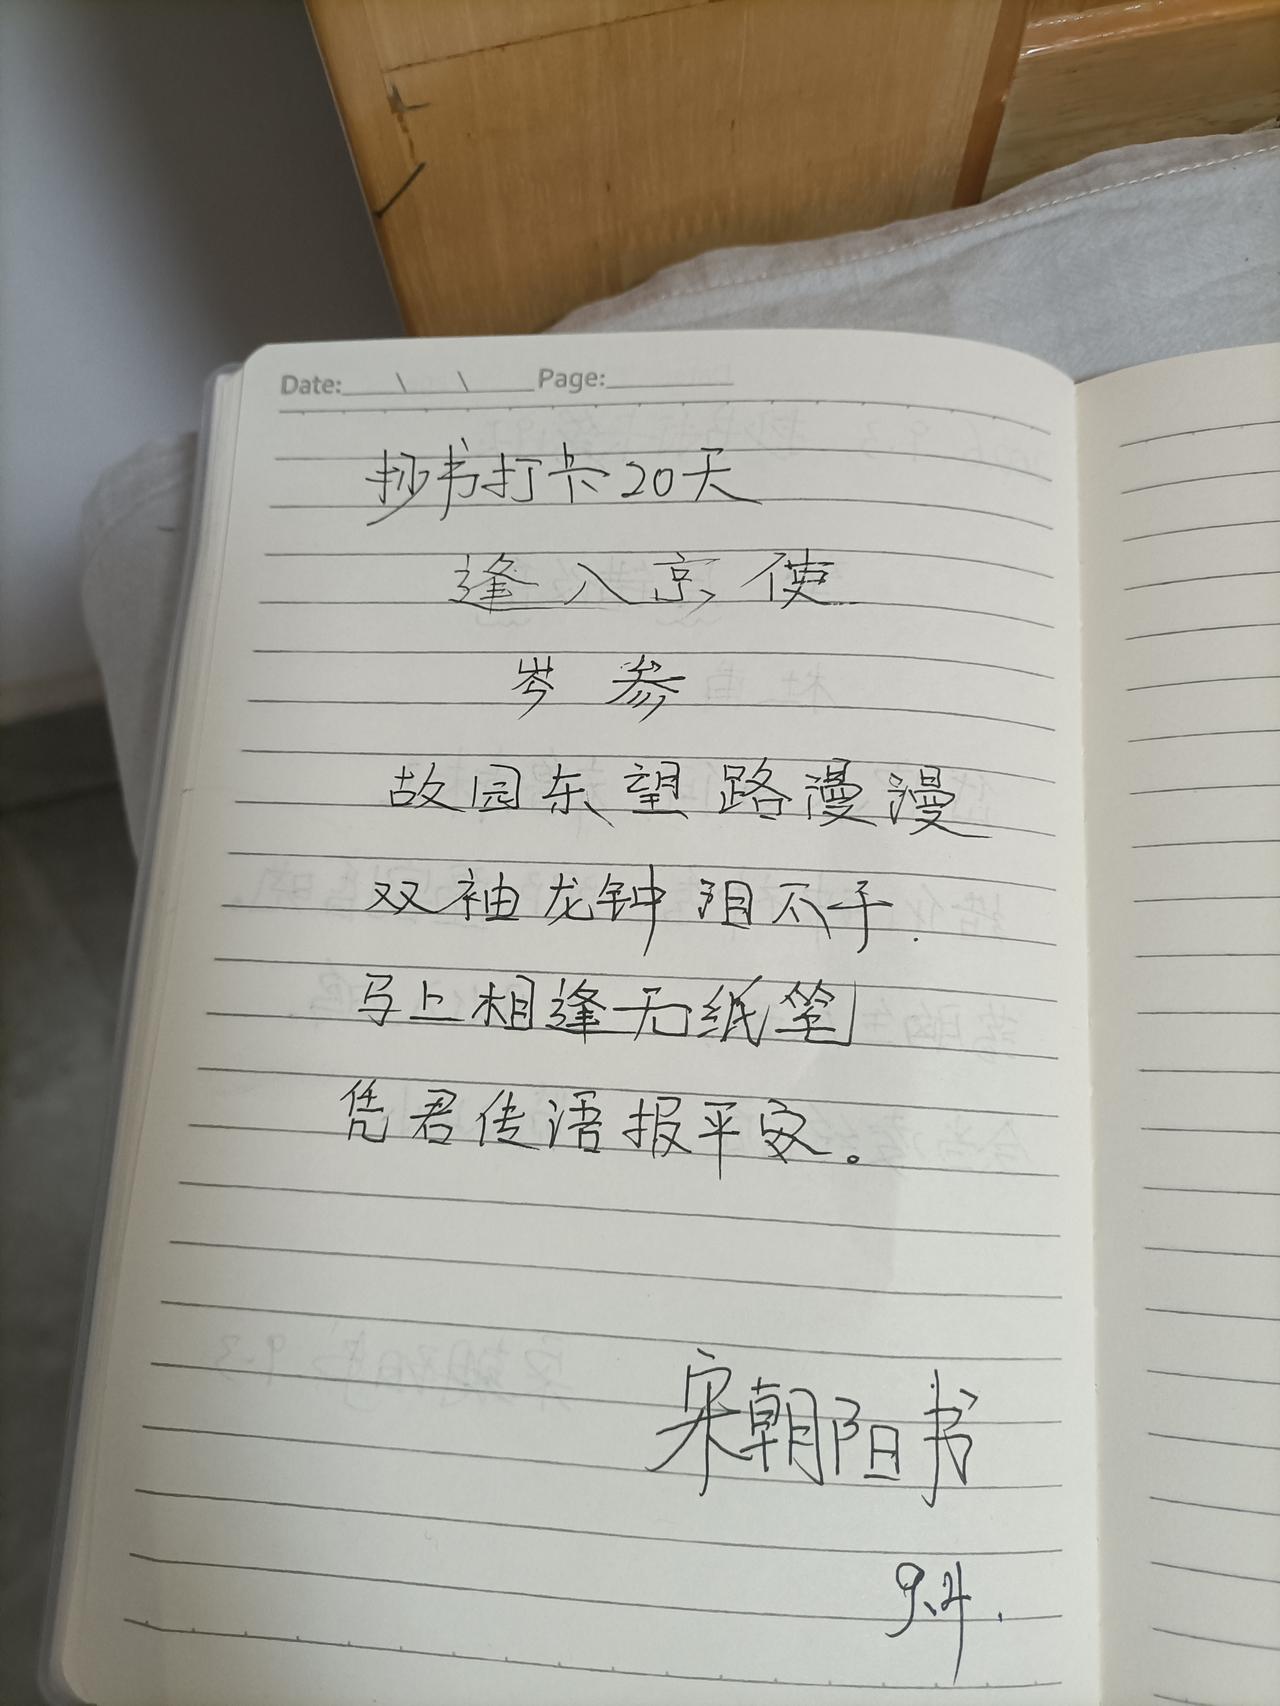 Date: \ \ Page:
抄书打卡20天
逢入京使
岑参
故园东望路漫漫
双袖龙钟泪不干.
马上相逢无纸笔
凭君传语报平安。
宋朝阳书
9.4.